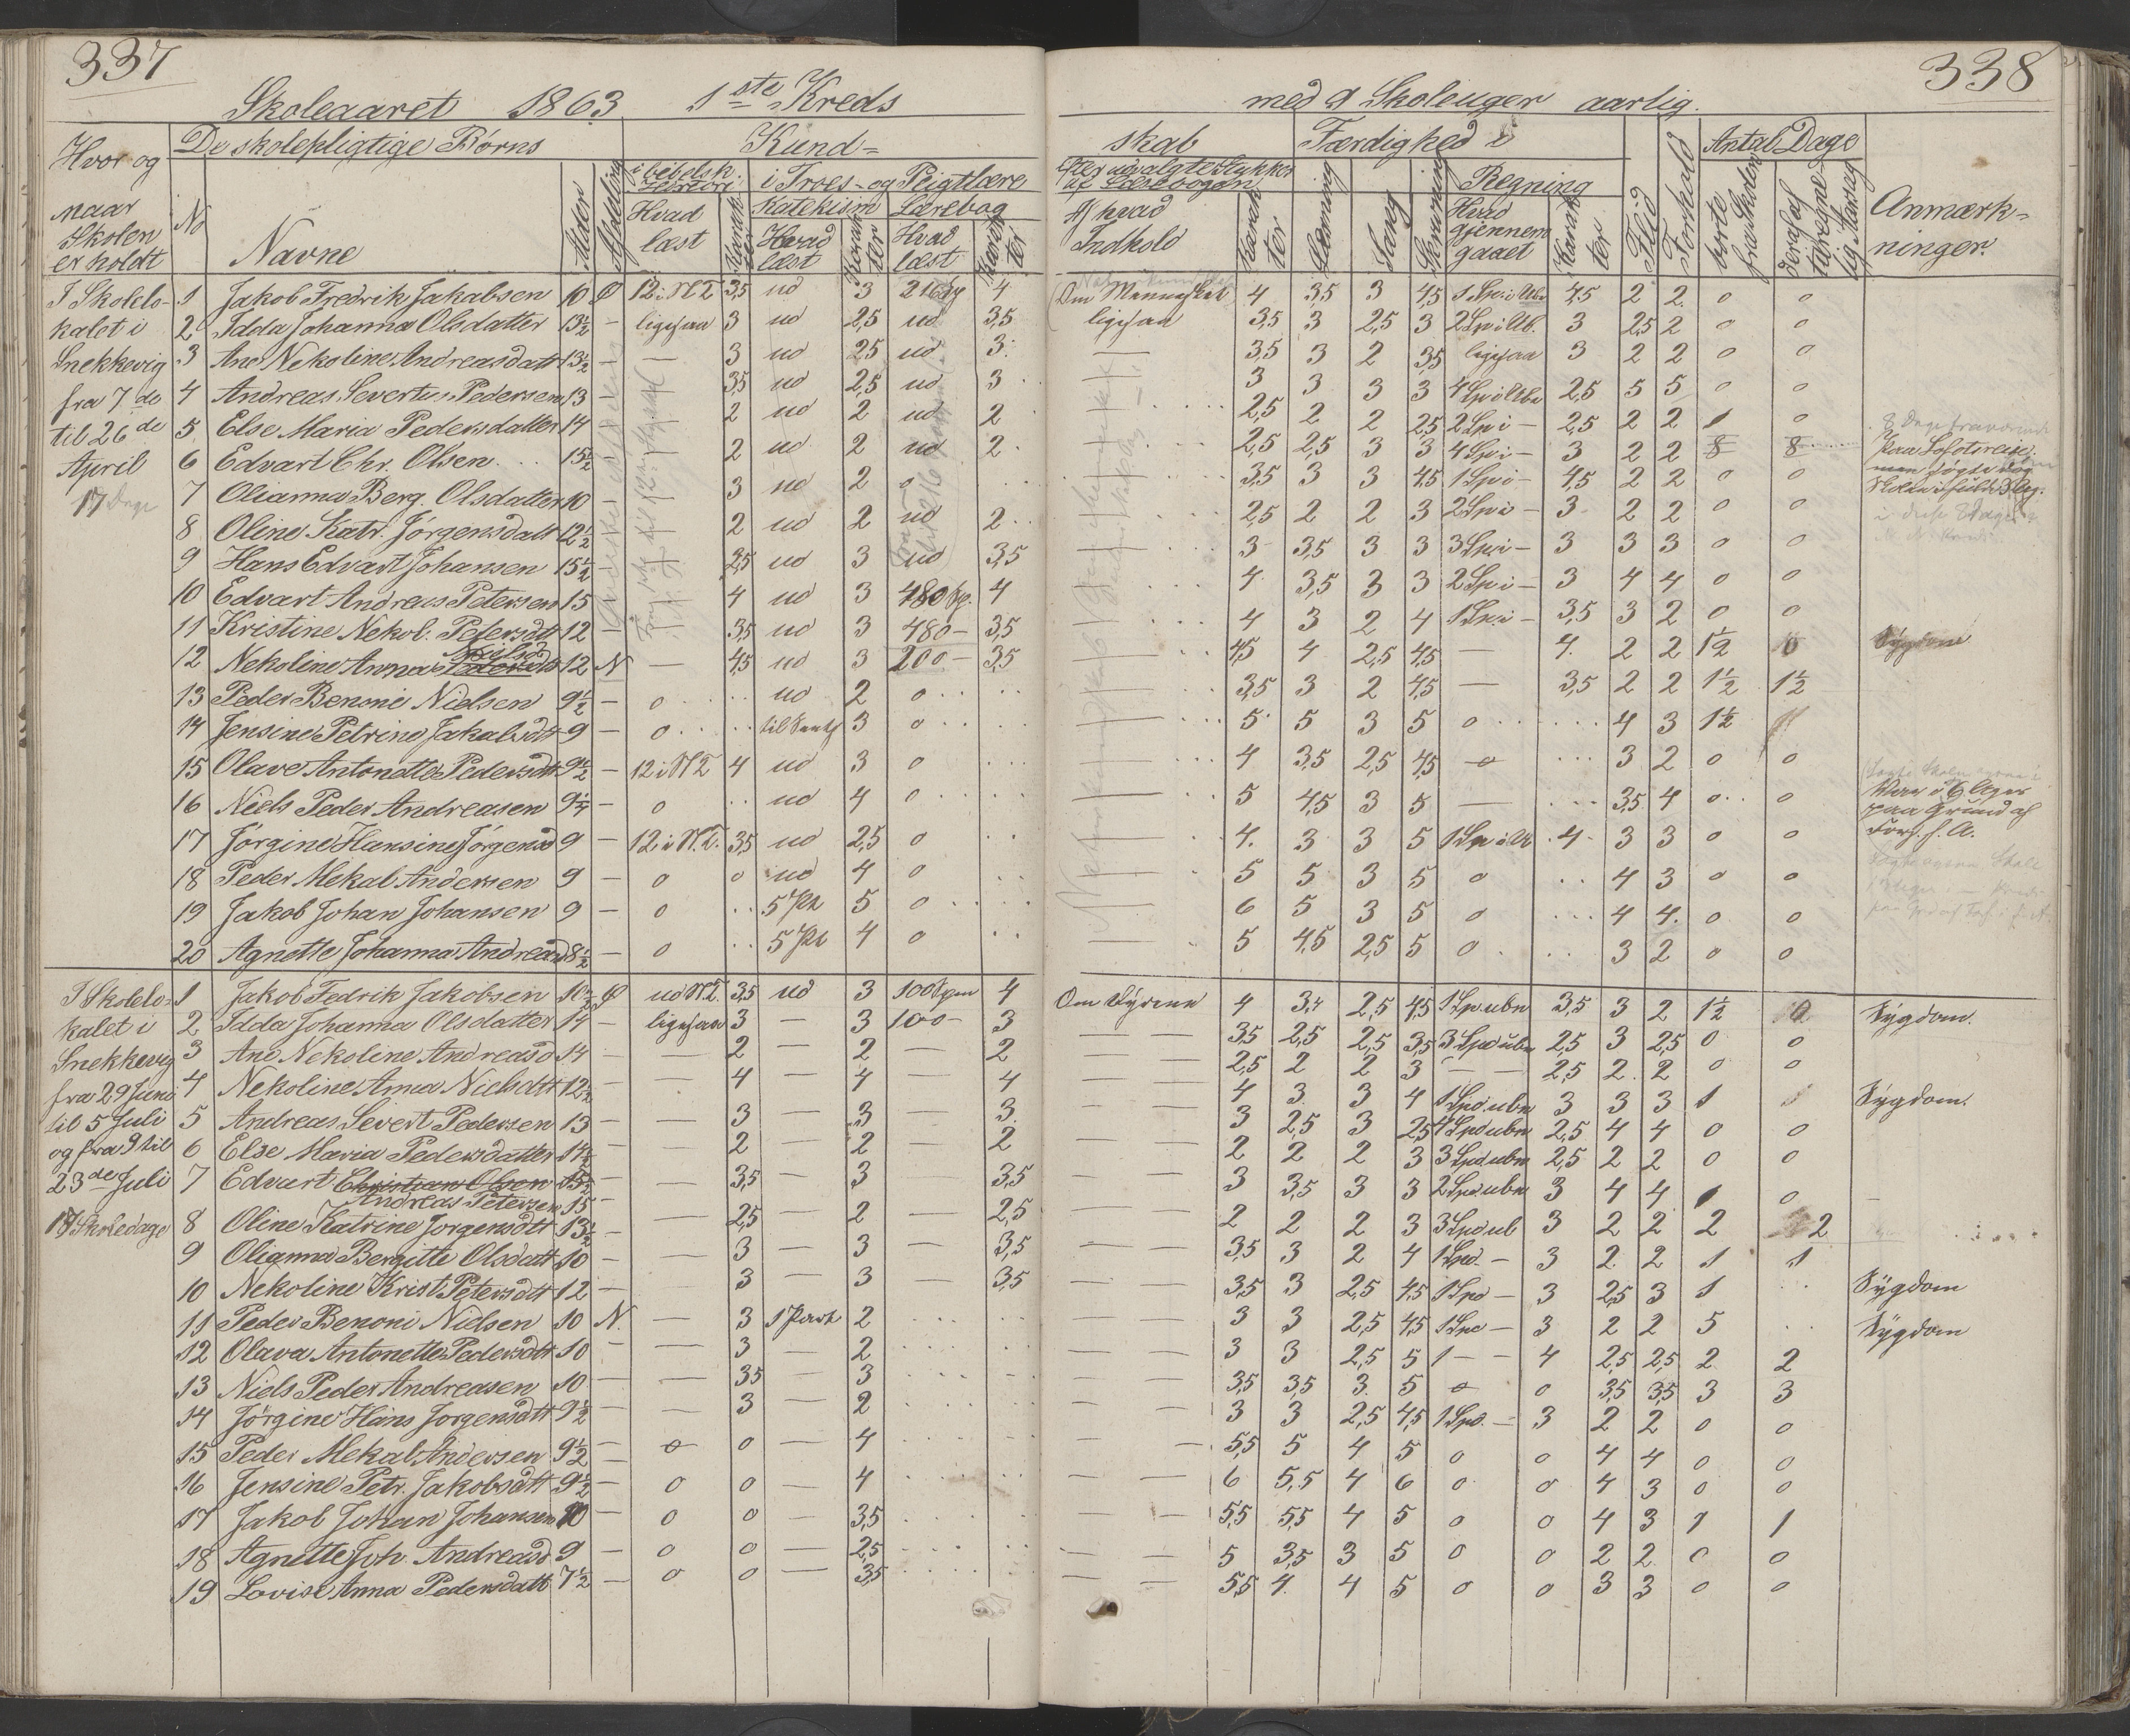 337
Skoleaaret 1863. 1ste Kreds
Hvor og naar Skolen er holdt
De skolepligtige Børns
No
Navne
Alder
Afdeling
Kund=
i bibelsk. Historie
Hvad læst
Karakter
i Troes- og Pligtlære
Katekism
Hvad læst
Karakter
Lærebog
Hvad læst
Karakter
I Skolelo-
kalet i
Snekkevig
fra 7 de
til 26 de
April
17 Dage
1 Jakob Fredrik Jakobsen 10 Ø 12 i N T 3,5 ud 3 216 Sp 4
2 Idda Johanna Olsdatter 13½ — ligesaa 3 ud 2,5 ud 3,5
3 Ane Nekoline Andreasdatt 13½ — — 3 ud 2,5 ud 3
4 Andreas Severtus Pedersen 13 — 3,5 ud 2,5 ud 3
5 Else Maria Pedersdatter 14 — 2 ud 2 ud 2
6 Edvart Chr. Olsen 15½ — 2 ud 2 ud 2
7 Olianna Berg. Olsdatter 10 — 3 ud 2 0
8 Oline Katr. Jørgensdatt 12½ — 2 ud 2 ud 2
9 Hans Edvart Johansen 15½ — 2,5 ud 3 ud 3,5
10 Edvart Andreas Petersen 15 — 4 ud 3 480 Sp. 4
11 Kristine Nekol. Petersdtt 12 — 3,5 ud 3 480 — 3,5
12 Nekoline Anna Nielsd 12 N — 4,5 ud 3 200 — 3,5
13 Peder Benoni Nielsen 9½ — 0 ud 2 0
14 Jensine Petrine Jakobsdtt 9 — 0 3 0
15 Olave Antonette Pedersdtt 9½ — 12 i N T 4 ud 3 0
16 Niels Peder Andreasen 9¼ — 0 ud 4 0
17 Jørgine Hansine Jørgensd 9 — 12 i N. T. 3,5 ud 2,5 0
18 Peder Mekal Andersen 9 — 0 0 ud 4 0
19 Jakob Johan Johansen 9 — 0 5 Pt 5 0
20 Agnette Johanna Andreasd 8½ — 0 5 Pt 4 0
I Skolelo-
kalet i
Snekkevig
fra 29 Juni
til 5 Juli
og fra 9 til
23 de Juli
17 Skoledage
1 Jakob Fedrik Jakobsen 10½ Ø ud N.T. 3,5 ud 3 100 Spm 4
2 Idda Johanna Olsdatter 14 — ligesaa 3 — 3 100 — 3
3 Ane Nekoline Andreasd 14 — — 2 — 2 — 2
4 Nekoline Anna Nielsdtt 12½ — — 4 — 4 — 4
5 Andreas Severt Pedersen 13 — — 3 — 3 — 3
6 Else Maria Pedersdatter 14½ — — 2 — 2 — 2
7 Edvart Christian Olsen 15½ — — 3,5 — 3 — 3,5
Andreas Petersen 15
8 Oline Katrine Jørgensdtt 13½ — — 2,5 — 2 — 2,5
9 Olianna Bergitte Olsdatt 10 — — 3 — 3 — 3,5
10 Nekoline Krist Petersdtt 12 — — 3 — 3 — 3,5
11 Peder Benoni Nielsen 10 N. — 3 1 Part 2
12 Olava Antonette Pedersdtt 10 — — 3 — 2
13 Niels Peder Andreasen 10 — — 3,5 — 3
14 Jörgine Hans Jorgensdtt 9½ — — 3 — 2
15 Peder Mekal Andersen 9½ — 0 0 — 4
16 Jensine Petr. Jakobsdtt 9½ — 0 0 — 4
17 Jakob Johan Johansen 10 — 0 0 — 3,5
18 Agnette Joh. Andreasd 9 — 0 0 — 2,5
19 Lovise Anna Pedersdatt 7½ — 0 0 — 3,5
338
med 9 Skoleuger aarlig.
skab
Efter udvalgte Stykker af Læsebogen
Af hvad Indhold
Karakter
Færdighed i
Læsning
Sang
Skrivning
Regning
Hvad gjennemgaaet
Karakter
Flid
Forhold
Antal Dage
borte fra Skolen
Anmærk=
ninger.
Om Mennesket 4 3,5 3 4,5 4,5 2 2 0 0
ligesaa 3,5 3 2,5 3 2 Sp i Ub. 3 2,5 2 0 0
— 3,5 3 2 3,5 ligesaa 3 2 2 0 0
3 3 3 3 4 Sp i Ube 2,5 5 5 0 0
2,5 2 2 2,5 2 Sp i — 2,5 2 2 1 0
2,5 2,5 3 3 4 Sp i — 3 2 2 8 8 paa Lofotreise.
3,5 3 3 4,5 1 Sp i — 4,5 2 2 0 0
2,5 2 2 3 2 Sp i — 3 2 2 0 0
3 3,5 3 3 3 Sp i — 3 3 3 0 0
4 3,5 3 3 2 Sp i — 3 4 4 0 0
4 3 2 4 1 Sp i — 3,5 3 2 0 0
4,5 4 2,5 4,5 — 4 2 2 1½ 0 Sygdom
3,5 3 2 4,5 — 3,5 2 2 1½ 1½
5 5 3 5 0 4 3 1½
4 3,5 2,5 4,5 0 3 2 0 0
5 4,5 3 5 — 3,5 4 0 0
paa Grund af
4 3 3 5 1 Sp i U 4 3 3 0 0
5 5 3 5 0 4 3 0 0
6 5 3 5 0 4 4 0 0
5 4,5 2,5 5 0 3 2 0 0
Om Dyrene 4 3,5 2,5 4,5 1 Sp ubn 3,5 3 2 1½ 0 Sygdom.
3,5 2,5 2,5 3,5 3 Spd ubn 2,5 3 2,5 0 0
2,5 2 2 3 — — 2,5 2 2 0 0
4 3 3 4 1 Spd ubn 3 3 3 1 Sygdom.
3 2,5 3 2,5 4 Spd ubn 2,5 4 4 0 0
2 2 2 3 3 Spd ubn 2,5 2 2 0 0
3 3,5 3 3 2 Spd ubn 3 4 4 1 0
2 2 2 3 3 Spd ub 3 2 2 2 2
3,5 3 2 4 1 Spd. — 3 2 2 1 1
3,5 3 2,5 4,5 1 Spd — 3 2,5 3 1 Sygdom
3 3 2,5 4,5 1 Spd — 3 2 2 5 Sygdom
3 3 2,5 5 1 — — 4 2,5 2,5 2 2
3,5 3,5 3 5 0 0 3,5 3,5 3 3
3 3 2,5 4,5 1 Spd. — 3 2 2 0 0
5,5 5 4 5 0 0 4 4 0 0
6 5,5 4 6 0 0 4 3 0 0
5,5 5,5 4 5 0 0 4 3 1 1
5 3,5 3 5 0 0 2 2 0 0
5,5 4 4 5 0 0 3 3 0 0